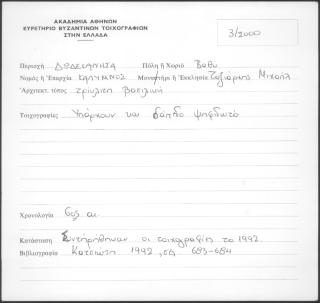 ΑΚΑΔΗΜΙΑ ΑΘΗΝΩΝ
ΕΥΡΕΤΗΡΙΟ ΒΥΖΑΝΤΙΝΩΝ ΤΟΙΧΟΓΡΑΦΙΩΝ
ΣΤΗΝ ΕΛΛΑΔΑ
3/2000
Περιοχή ΔΩΔΕΚΑΝΗΣΑ Πόλη ή Χωριό Βαθύ
Νομός ή Ἐπαρχία ΚΑΛΥΜΝΟΣ Μοναστήρι ή Ἐκκλησία Ταξιάρχης Μιχαήλ
Ἀρχιτεκτ. τύπος τρίκλιτη βασιλική
Τοιχογραφίες Υπάρχουν και δάπεδο ψηφιδωτό
Χρονολογία 6ος αι.
Κατάσταση Συντηρήθηκαν οι τοιχογραφίες το 1992
Βιβλιογραφία 1992, σελ 683-684